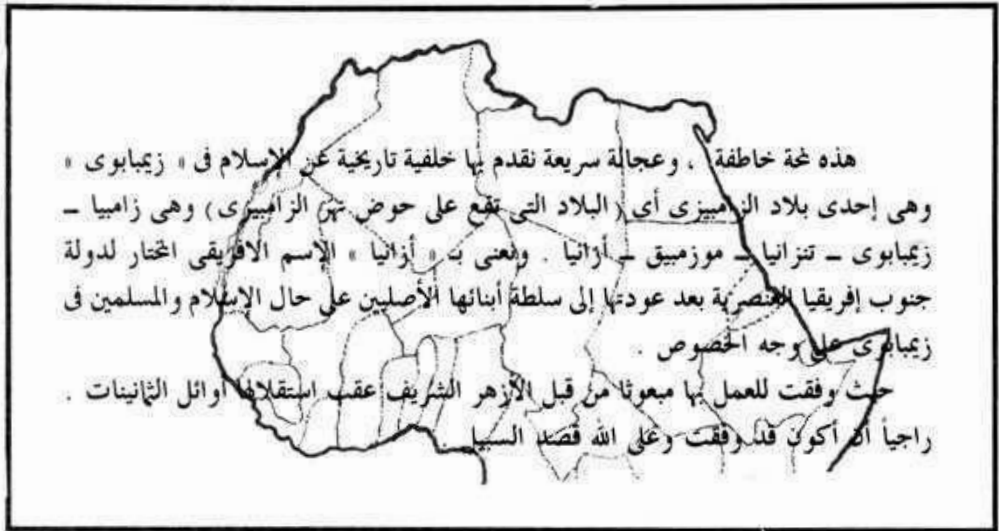 هذه لمحة خاطفة ، وعجالة سريعة نقدم بها خلفية تاريخية عن الإسلام فى « زيمبابوى »
وهى إحدى بلاد الزامبيزى أي ( البلاد التى تقع على حوض نهر الزامبيزى ) وهى زامبيا ــ
زيمبابوى ــ تنزانيا ــ موزمبيق ــ أزانيا . ونعنى بـ « أزانيا » الإسم الافريقى المختار لدولة
جنوب إفريقيا العنصرية بعد عودتها إلى سلطة أبنائها الأصليين على حال الإسلام والمسلمين فى
زيمبابوى على وجه الخصوص .
حيث وفقت للعمل بها مبعوثا من قبل الأزهر الشريف عقب استقلالها أوائل الثمانينات .
راجياً أن أكون قد وفقت وعلى الله قصد السبيل .